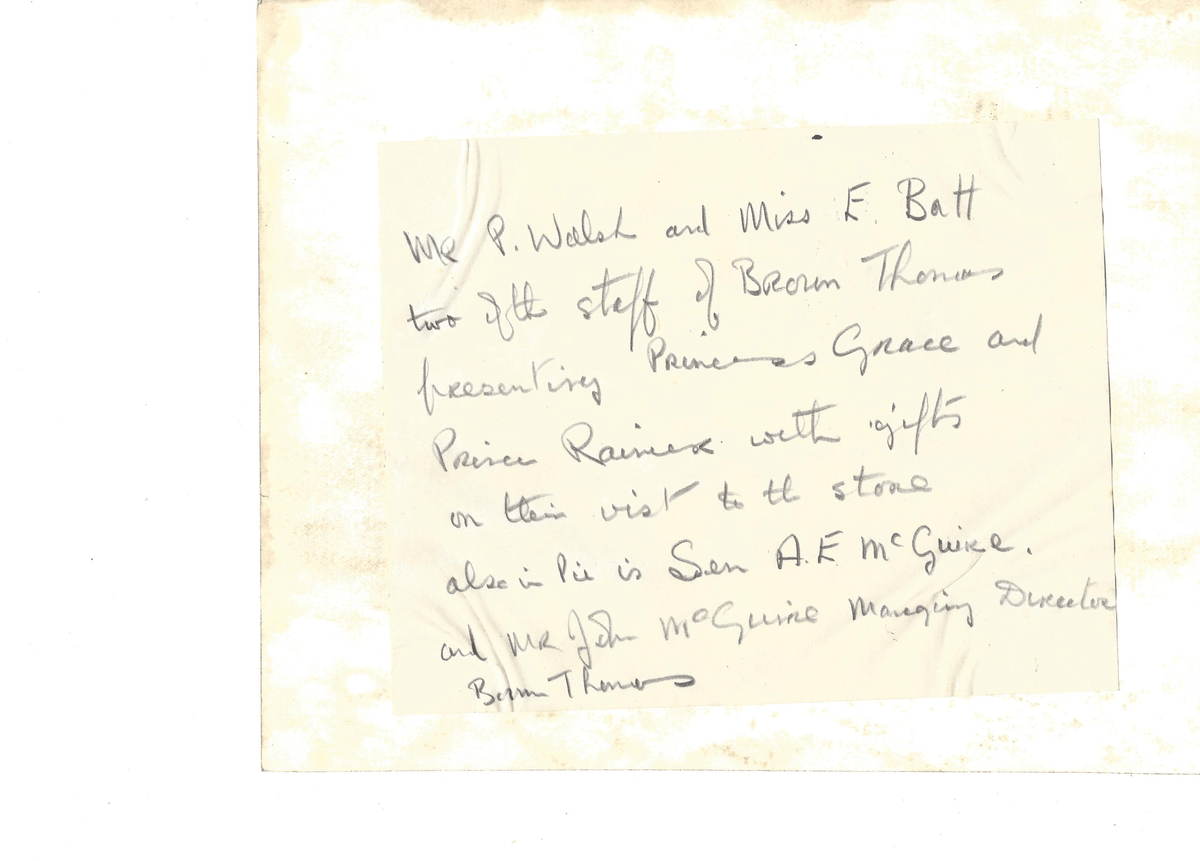 Mr P. Walsh and Miss E. Batt
two of the staff of Brown Thomas
presenting Princess Grace and
Prince Rainier with gifts
on their vist to the store
also in Pic is Sen A.E McGuire.
and Mr John McGuire Managing Director
Brown Thomas